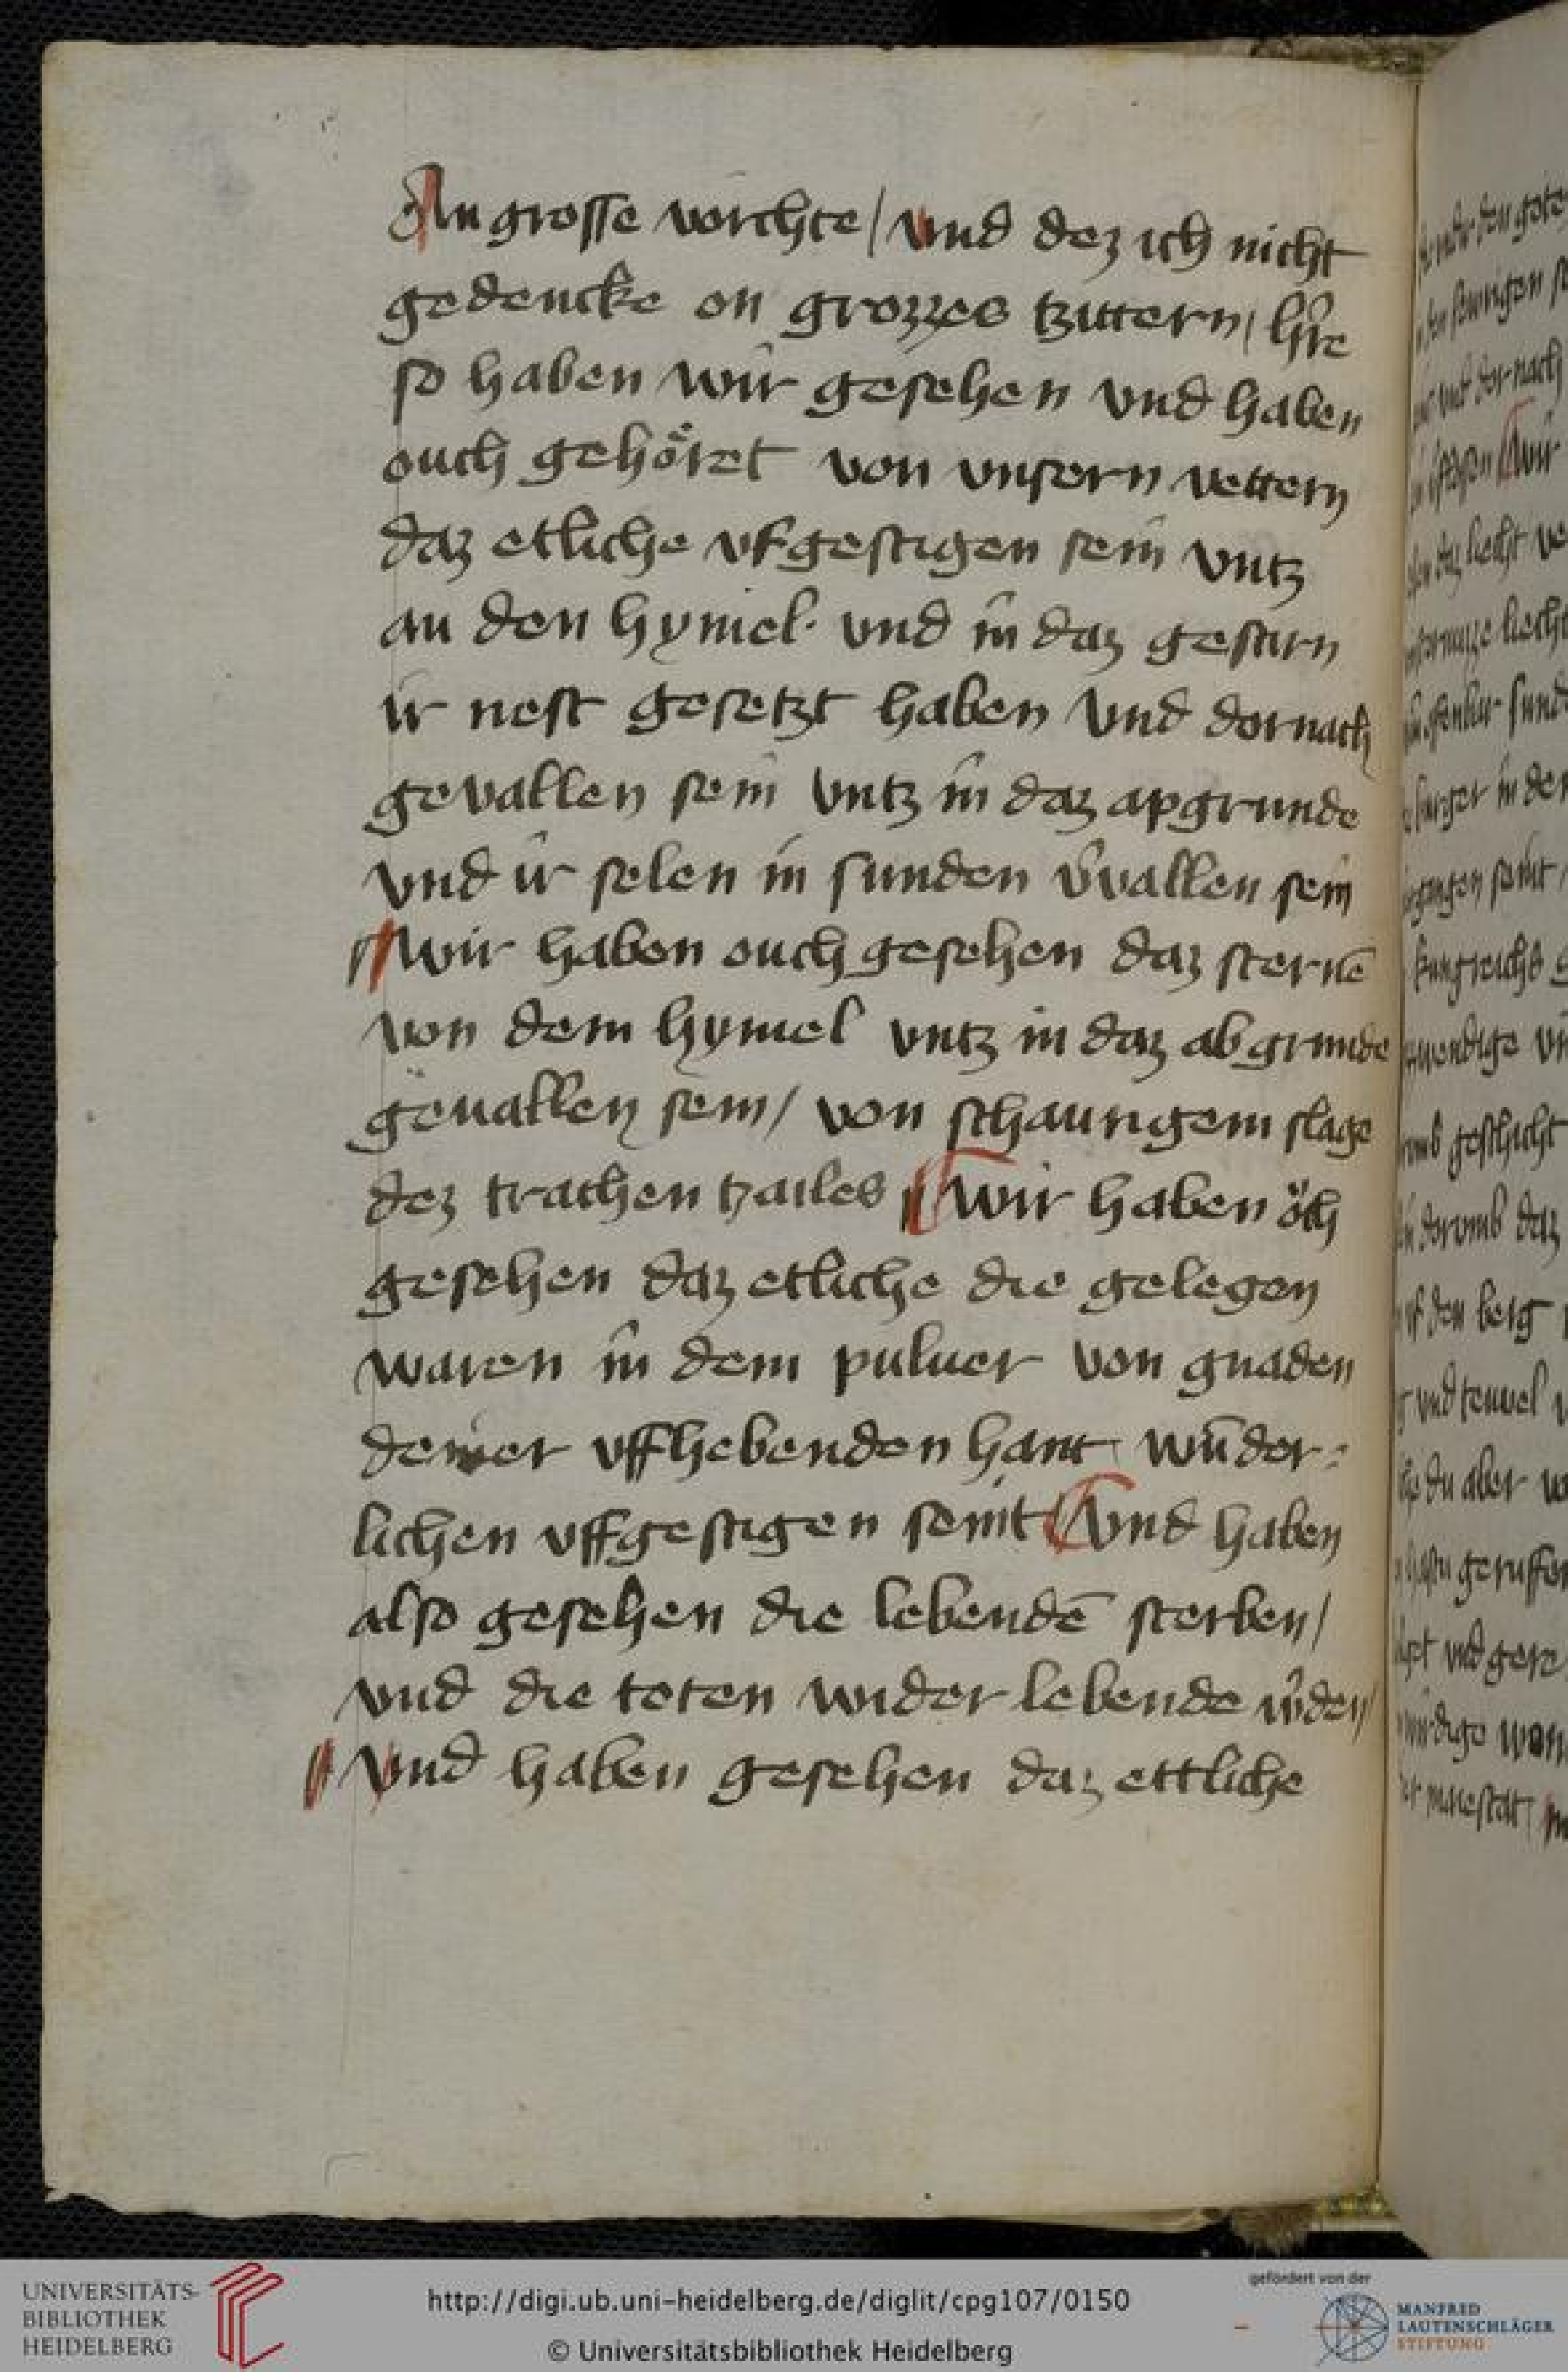 An grosse vorchte / vnd dez ich nicht
gedencke on grozzes tzittern / h̄re
so haben wir gesehen vnd haben
ouch gehöret von vnsern vettern
daz etliche vfgestigen sein vntz
an den hymel · vnd in daz gestirn
ir nest gesetzt haben vnd dornach
gevallen sein vntz in daz apgrunde
vnd ir selen in sunden v̄vallen sein
wir haben ouch gesehen daz sternē
von dem hymel vntz in daz abgrunde
geuallen sein / von schaurigem slage
dez trachen tzailes wir haben öch
gesehen daz etliche die gelegen
waren in dem puluer von gnaden
deiner vffhebenden hant wūder-
lichen vffgestigen seint vnd haben
also gesehen die lebendē sterben /
vnd die toten wider lebende w̄den /
vnd haben gesehen daz ettliche
UNIVERSITÄTS-
BIBLIOTHEK
HEIDELBERG
http://digi.ub.uni-heidelberg.de/diglit/cpg107/0150
© Universitätsbibliothek Heidelberg
gefördert von der
MANFRED
LAUTENSCHLÄGER
STIFTUNG